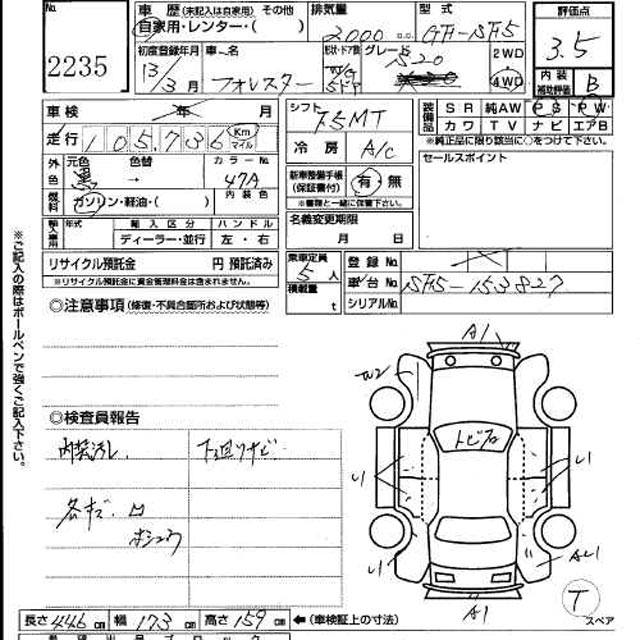 No. 2235
車歴 (未記入は自家用) その他
自家用・レンター・( )
排気量 2000 c.c.
型式 GF-SF5
評価点 3.5
初度登録年月 13/3月
車名 フォレスター
形状・ドア数 W/G 5ドア
グレード S20
2WD
4WD
内装補助評価 B
車検 年 月
シフト F5MT
装備品 SR 純AW PS PW
カワ TV ナビ エアB
※純正品に限り該当に○をつけて下さい。
走行 105,736 Km マイル
冷房 A/C
セールスポイント
外色 元色 黒 色替 → カラーNo. 47A
新車整備手帳(保証書付) 有・無
※書類と一緒に保管下さい。
燃料 ガソリン・軽油・( ) 内装色
輸入車用 年式 輸入区分 ハンドル
ディーラー・並行 左・右
名義変更期限
月 日
リサイクル預託金 円 預託済み
※リサイクル預託金に資金管理料金は含まれません。
乗車定員 5人
積載量 t
登録No.
車台No. SF5-153827
シリアルNo.
◎注意事項 (修復・不具合箇所および状態等)
※ご記入の際はボールペンで強くご記入下さい。
A1
W2
トビ石
◎検査員報告
内装汚れ 下廻りサビ
各キズ・凹
ホシュウ
U
U
U
AU
A1
T
スペア
長さ 446 cm 幅 173 cm 高さ 159 cm ←(車検証上の寸法)